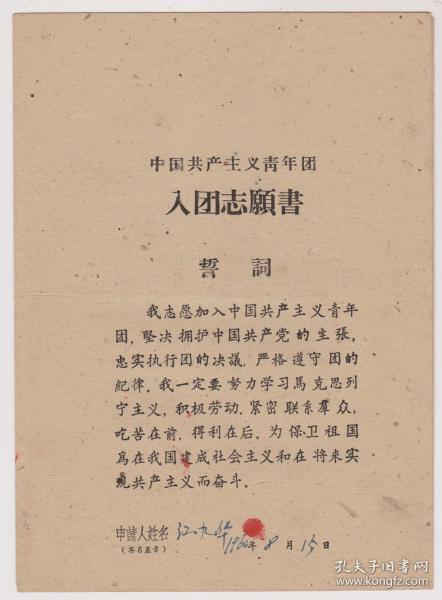 中国共产主义靑年团
入团志願書
誓詞
我志愿加入中国共产主义青年
团，坚决拥护中国共产党的主張，
忠实执行团的决議，严格遵守团的
紀律，我一定要努力学习馬克思列
宁主义，积极劳动，紧密联系羣众，
吃苦在前，得利在后，为保卫祖国
爲在我国建成社会主义和在将来实
現共产主义而奋斗。
申請人姓名 江九华 年8月15日
（签名盖章）
孔夫子旧书网
www.kongfz.com